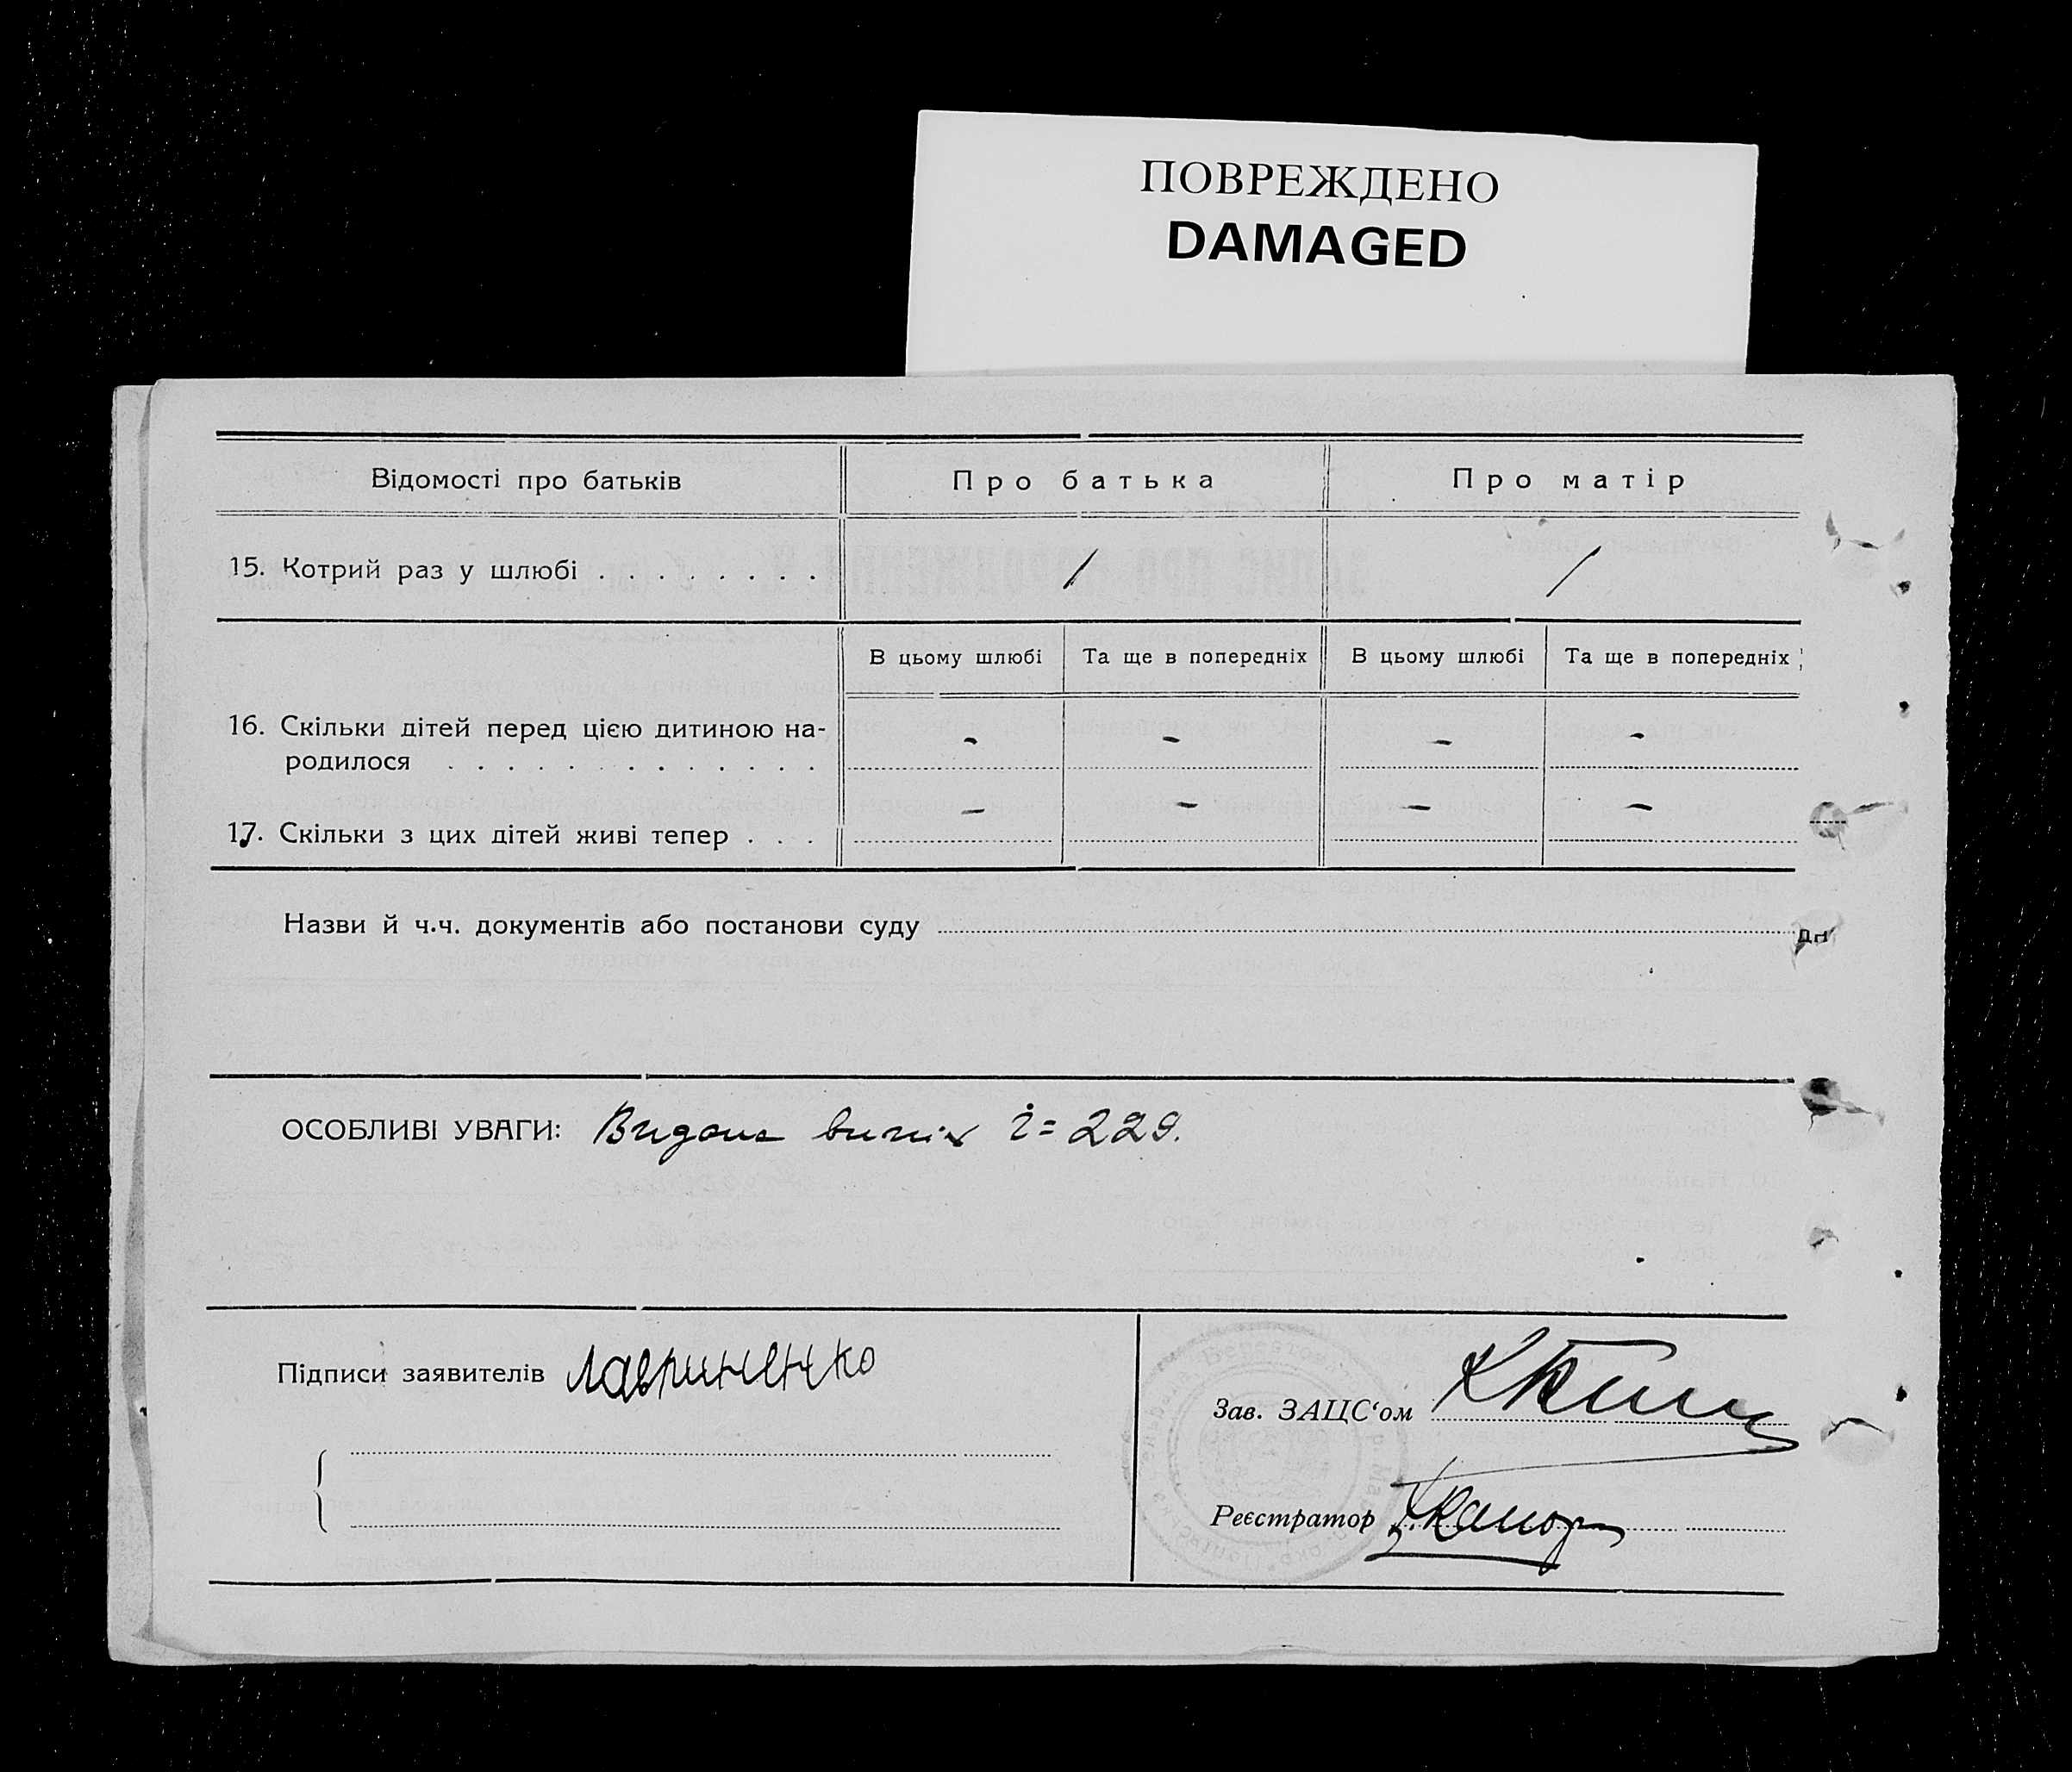 ПОВРЕЖДЕНО
DAMAGED
Відомості про батьків
Про батька
Про матір
15. Котрий раз у шлюбі . . . . . . . . . / /
В цьому шлюбі
Та ще в попередніх
В цьому шлюбі
Та ще в попередніх
16. Скільки дітей перед цією дитиною на-
родилося . . . . . . . . . . . . . - - - -
17. Скільки з цих дітей живі тепер . . . - - - -
Назви й ч.ч. документів або постанови суду
ОСОБЛИВІ УВАГИ: Видана випис ч= 229.
Підписи заявителів Лавриненко
Зав. ЗАЦС‘ом
Реєстратор